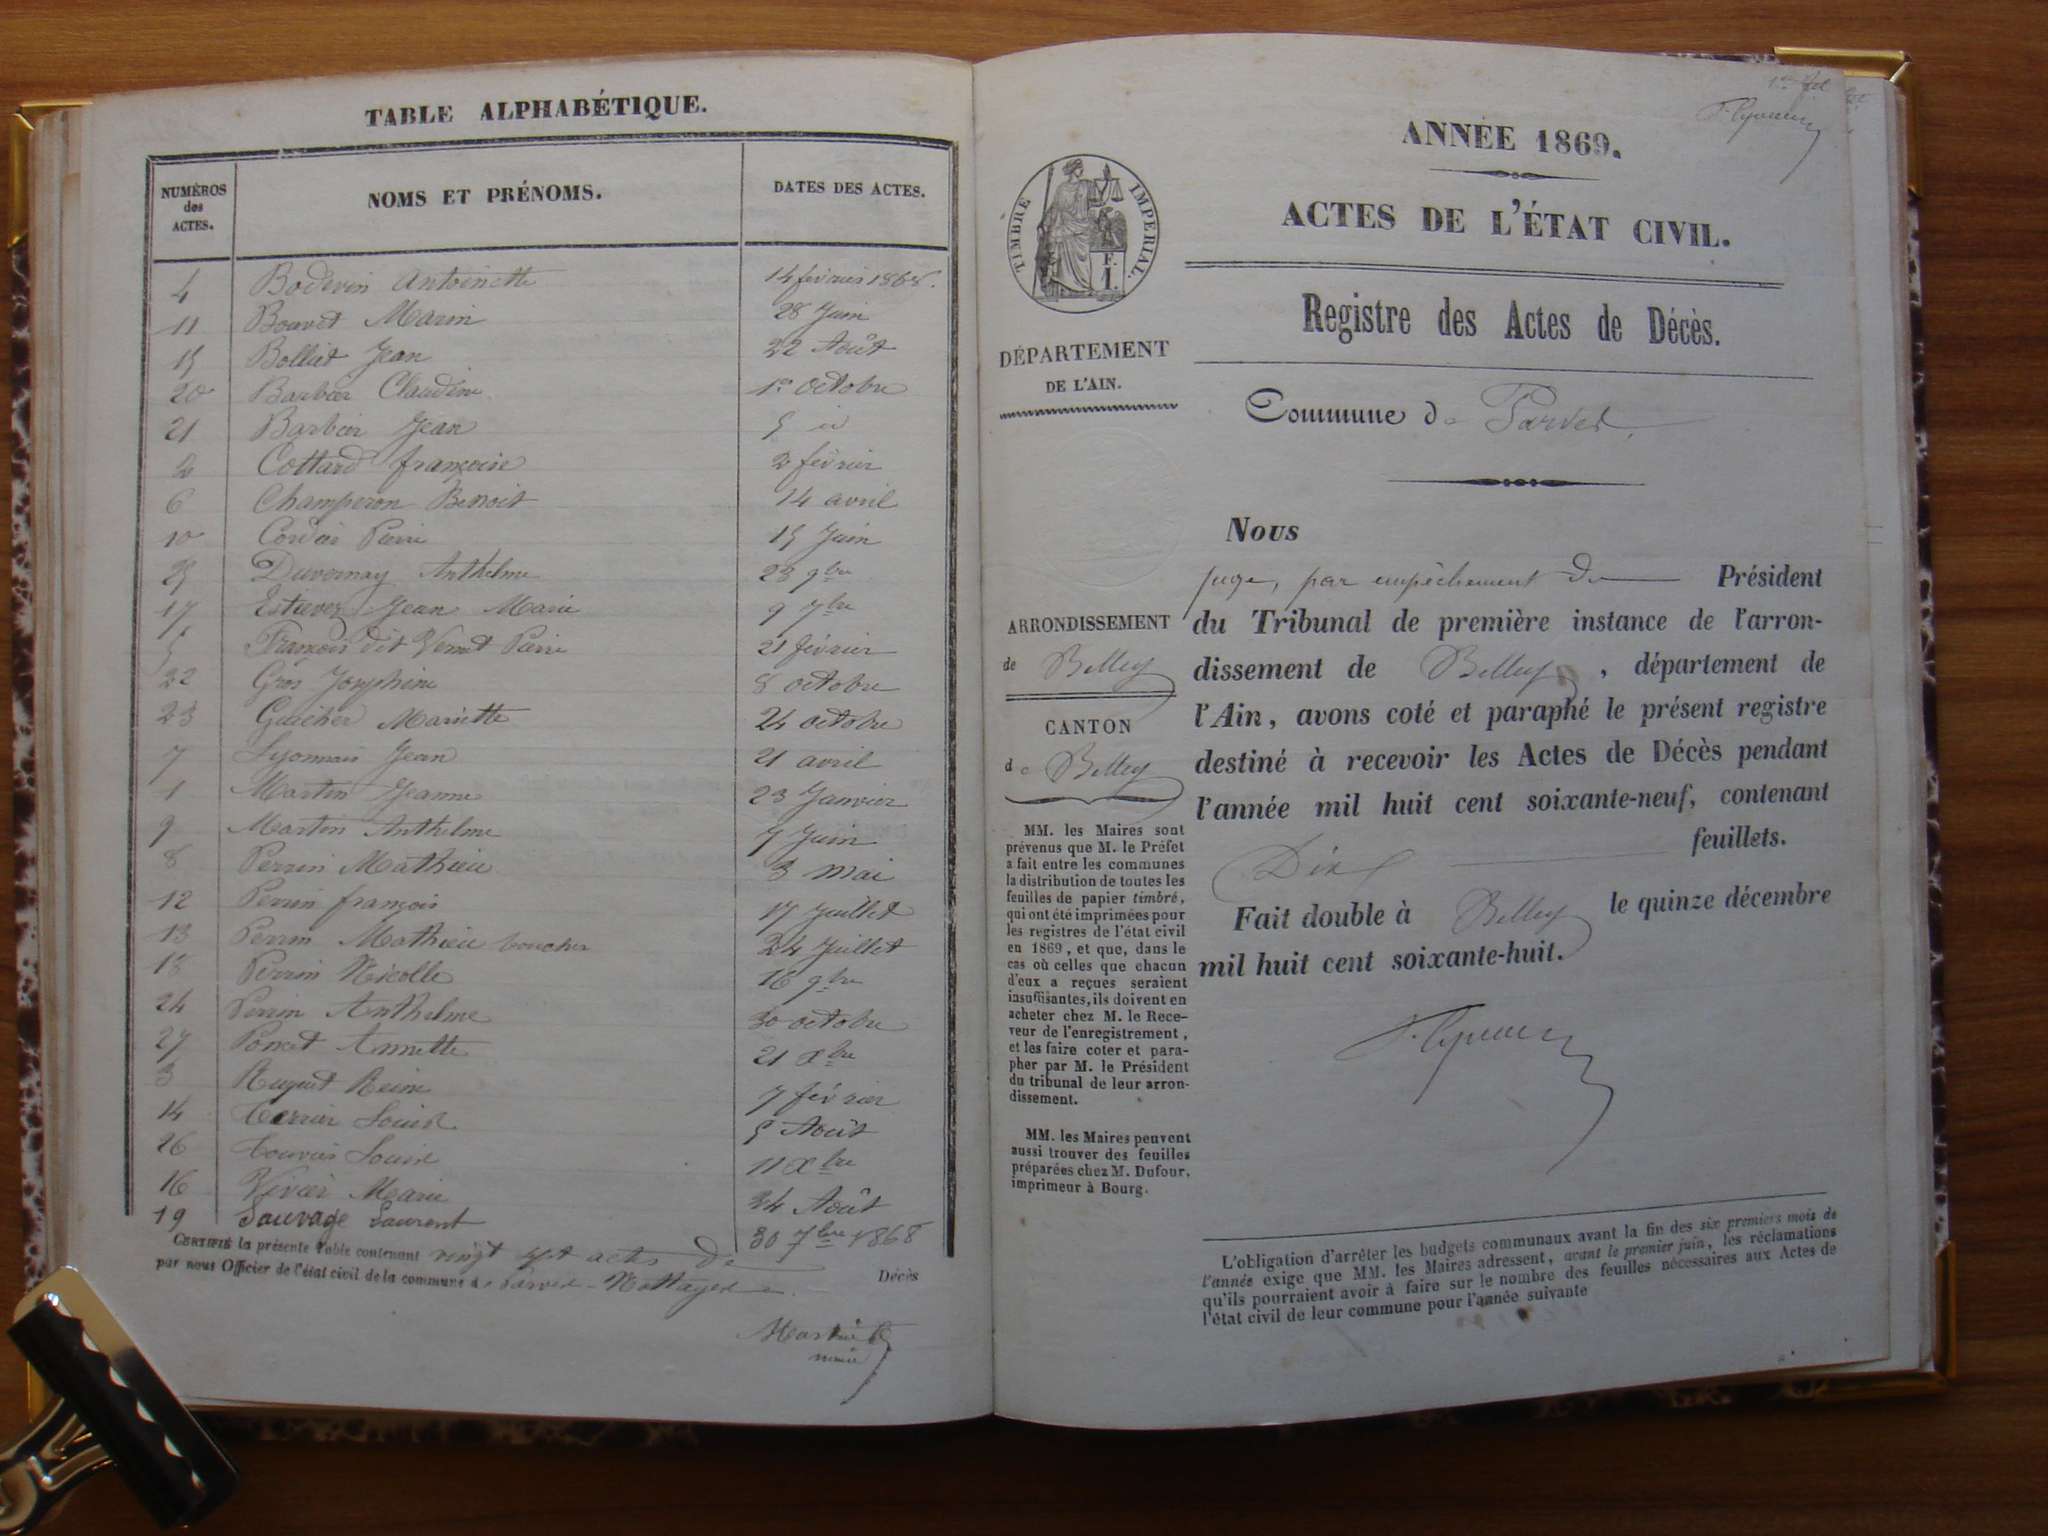 TABLE ALPHABÉTIQUE.
NUMÉROS des ACTES. NOMS ET PRÉNOMS. DATES DES ACTES.
4 Boderin Antoinette 14 février 1868.
11 Bouvet Marin 28 Juin
15 Bolliet Jean 22 Août
20 Barbier Claudine 1er octobre
21 Barbier Jean 5 id
2 Cottard françoise 2 février
6 Champeron Benoit 14 avril
10 Cordier Pierre 15 Juin
25 Duvernay Anthelme 28 9bre
17 Estievez Jean Marie 9 7bre
5 François dit Vernet Pierre 21 février
22 Gros Josephine 8 octobre
23 Guicher Mariette 24 octobre
7 Lyonnais Jean 21 avril
1 Martin Jeanne 23 Janvier
9 Martin Anthelme 7 Juin
8 Perrin Mathieu 3 mai
12 Perrin françois 17 Juillet
13 Perrin Mathieu boucher 24 Juillet
18 Perrin Nicolle 16 9bre
24 Perrin Anthelme 30 octobre
27 Poncet Annette 21 Xbre
3 Reine 7 février
14 Terrier Louise 5 Août
26 Louise 11 Xbre
16 Vivier Marie 24 Août
19 Sauvage Laurent 30 7bre 1868
CERTIFIÉ la présente Table contenant vingt sept actes de Décès
par nous Officier de l'état civil de la commune de Parves-Nattages
Martin
maire
ANNÉE 1869.
ACTES DE L'ÉTAT CIVIL.
TIMBRE IMPERIAL.
F.
1.
Registre des Actes de Décès.
DÉPARTEMENT
DE L'AIN.
Commune de Parves
ARRONDISSEMENT
de Belley
CANTON
de Belley
MM. les Maires sont
prévenus que M. le Préfet
a fait entre les communes
la distribution de toutes les
feuilles de papier timbré,
qui ont été imprimées pour
les registres de l'état civil
en 1869, et que, dans le
cas où celles que chacun
d'eux a reçues seraient
insuffisantes, ils doivent en
acheter chez M. le Rece-
veur de l'enregistrement,
et les faire coter et para-
pher par M. le Président
du tribunal de leur arron-
dissement.
MM. les Maires peuvent
aussi trouver des feuilles
préparées chez M. Dufour,
imprimeur à Bourg.
Nous
juge, par empêchement du Président
du Tribunal de première instance de l'arron-
dissement de Belley, département de
l'Ain, avons coté et paraphé le présent registre
destiné à recevoir les Actes de Décès pendant
l'année mil huit cent soixante-neuf, contenant
Dix feuillets.
Fait double à Belley le quinze décembre
mil huit cent soixante-huit.
L'obligation d'arrêter les budgets communaux avant la fin des six premiers mois de
l'année exige que MM. les Maires adressent, avant le premier juin, les réclamations
qu'ils pourraient avoir à faire sur le nombre des feuilles nécessaires aux Actes de
l'état civil de leur commune pour l'année suivante